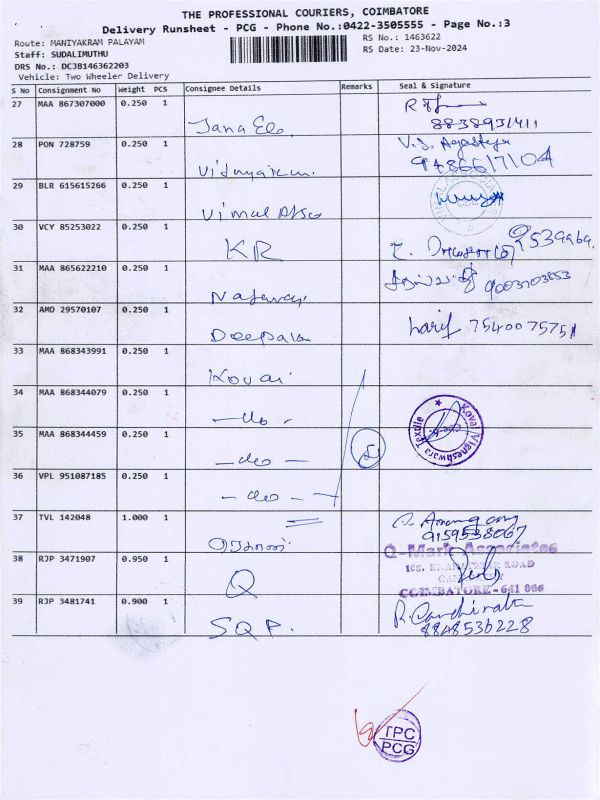 THE PROFESSIONAL COURIERS, COIMBATORE
Delivery Runsheet - PCG - Phone No.:0422-3505555 - Page No.:3
Route: MANIYAKRAM PALAYAM
RS No.: 1463622
Staff: SUDALIMUTHU
RS Date: 23-Nov-2024
DRS No.: DCJB146362203
Vehicle: Two Wheeler Delivery
S No Consignment No Weight PCS Consignee Details Remarks Seal & Signature
27 MAA 867307000 0.250 1
8838931411
28 PON 728759 0.250 1
9486617104
29 BLR 615615266 0.250 1
Vimal
30 VCY 85253022 0.250 1
KR
31 MAA 865622210 0.250 1
9003703853
32 AMD 29570107 0.250 1
Deepala
harif 7540075751
33 MAA 868343991 0.250 1
Kovai
34 MAA 868344079 0.250 1
-do-
Kovai Vigneshwara Textile
Cbe-6.
35 MAA 868344459 0.250 1
-do-
36 VPL 951087185 0.250 1
-do-
37 TVL 142048 1.000 1
9159538067
38 RJP 3471907 0.950 1
Q
Q-Mark Associates
ROAD
COIMBATORE - 641 006
39 RJP 3481741 0.900 1
SQP.
8848530228
TPC
PCG